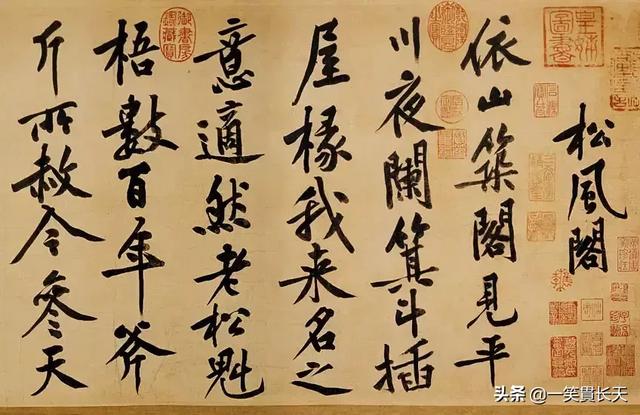 皇姊圖書
松風閣
依山築閣見平
川夜闌箕斗插
屋椽我来名之
意適然老松魁
梧數百年斧
斤所赦令參天
头条 @一笑貫长天